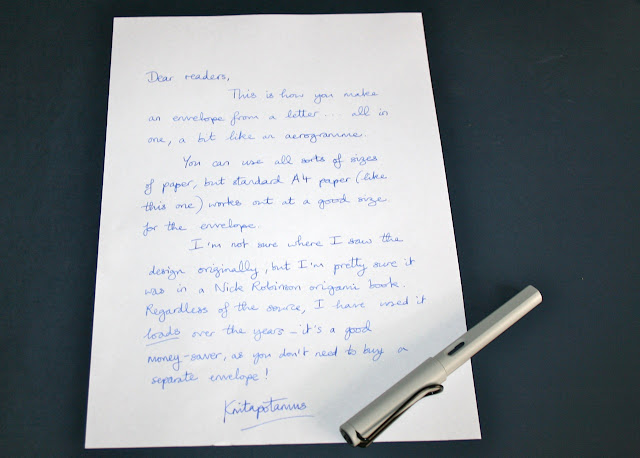 Dear readers,
This is how you make
an envelope from a letter... all in
one, a bit like an aerogramme.
You can use all sorts of sizes
of paper, but standard A4 paper (like
this one) works out at a good size
for the envelope.
I'm not sure where I saw the
design originally, but I'm pretty sure it
was in a Nick Robinson origami book.
Regardless of the source, I have used it
loads over the years - it's a good
money-saver, as you don't need to buy a
separate envelope!
Knitapotamus